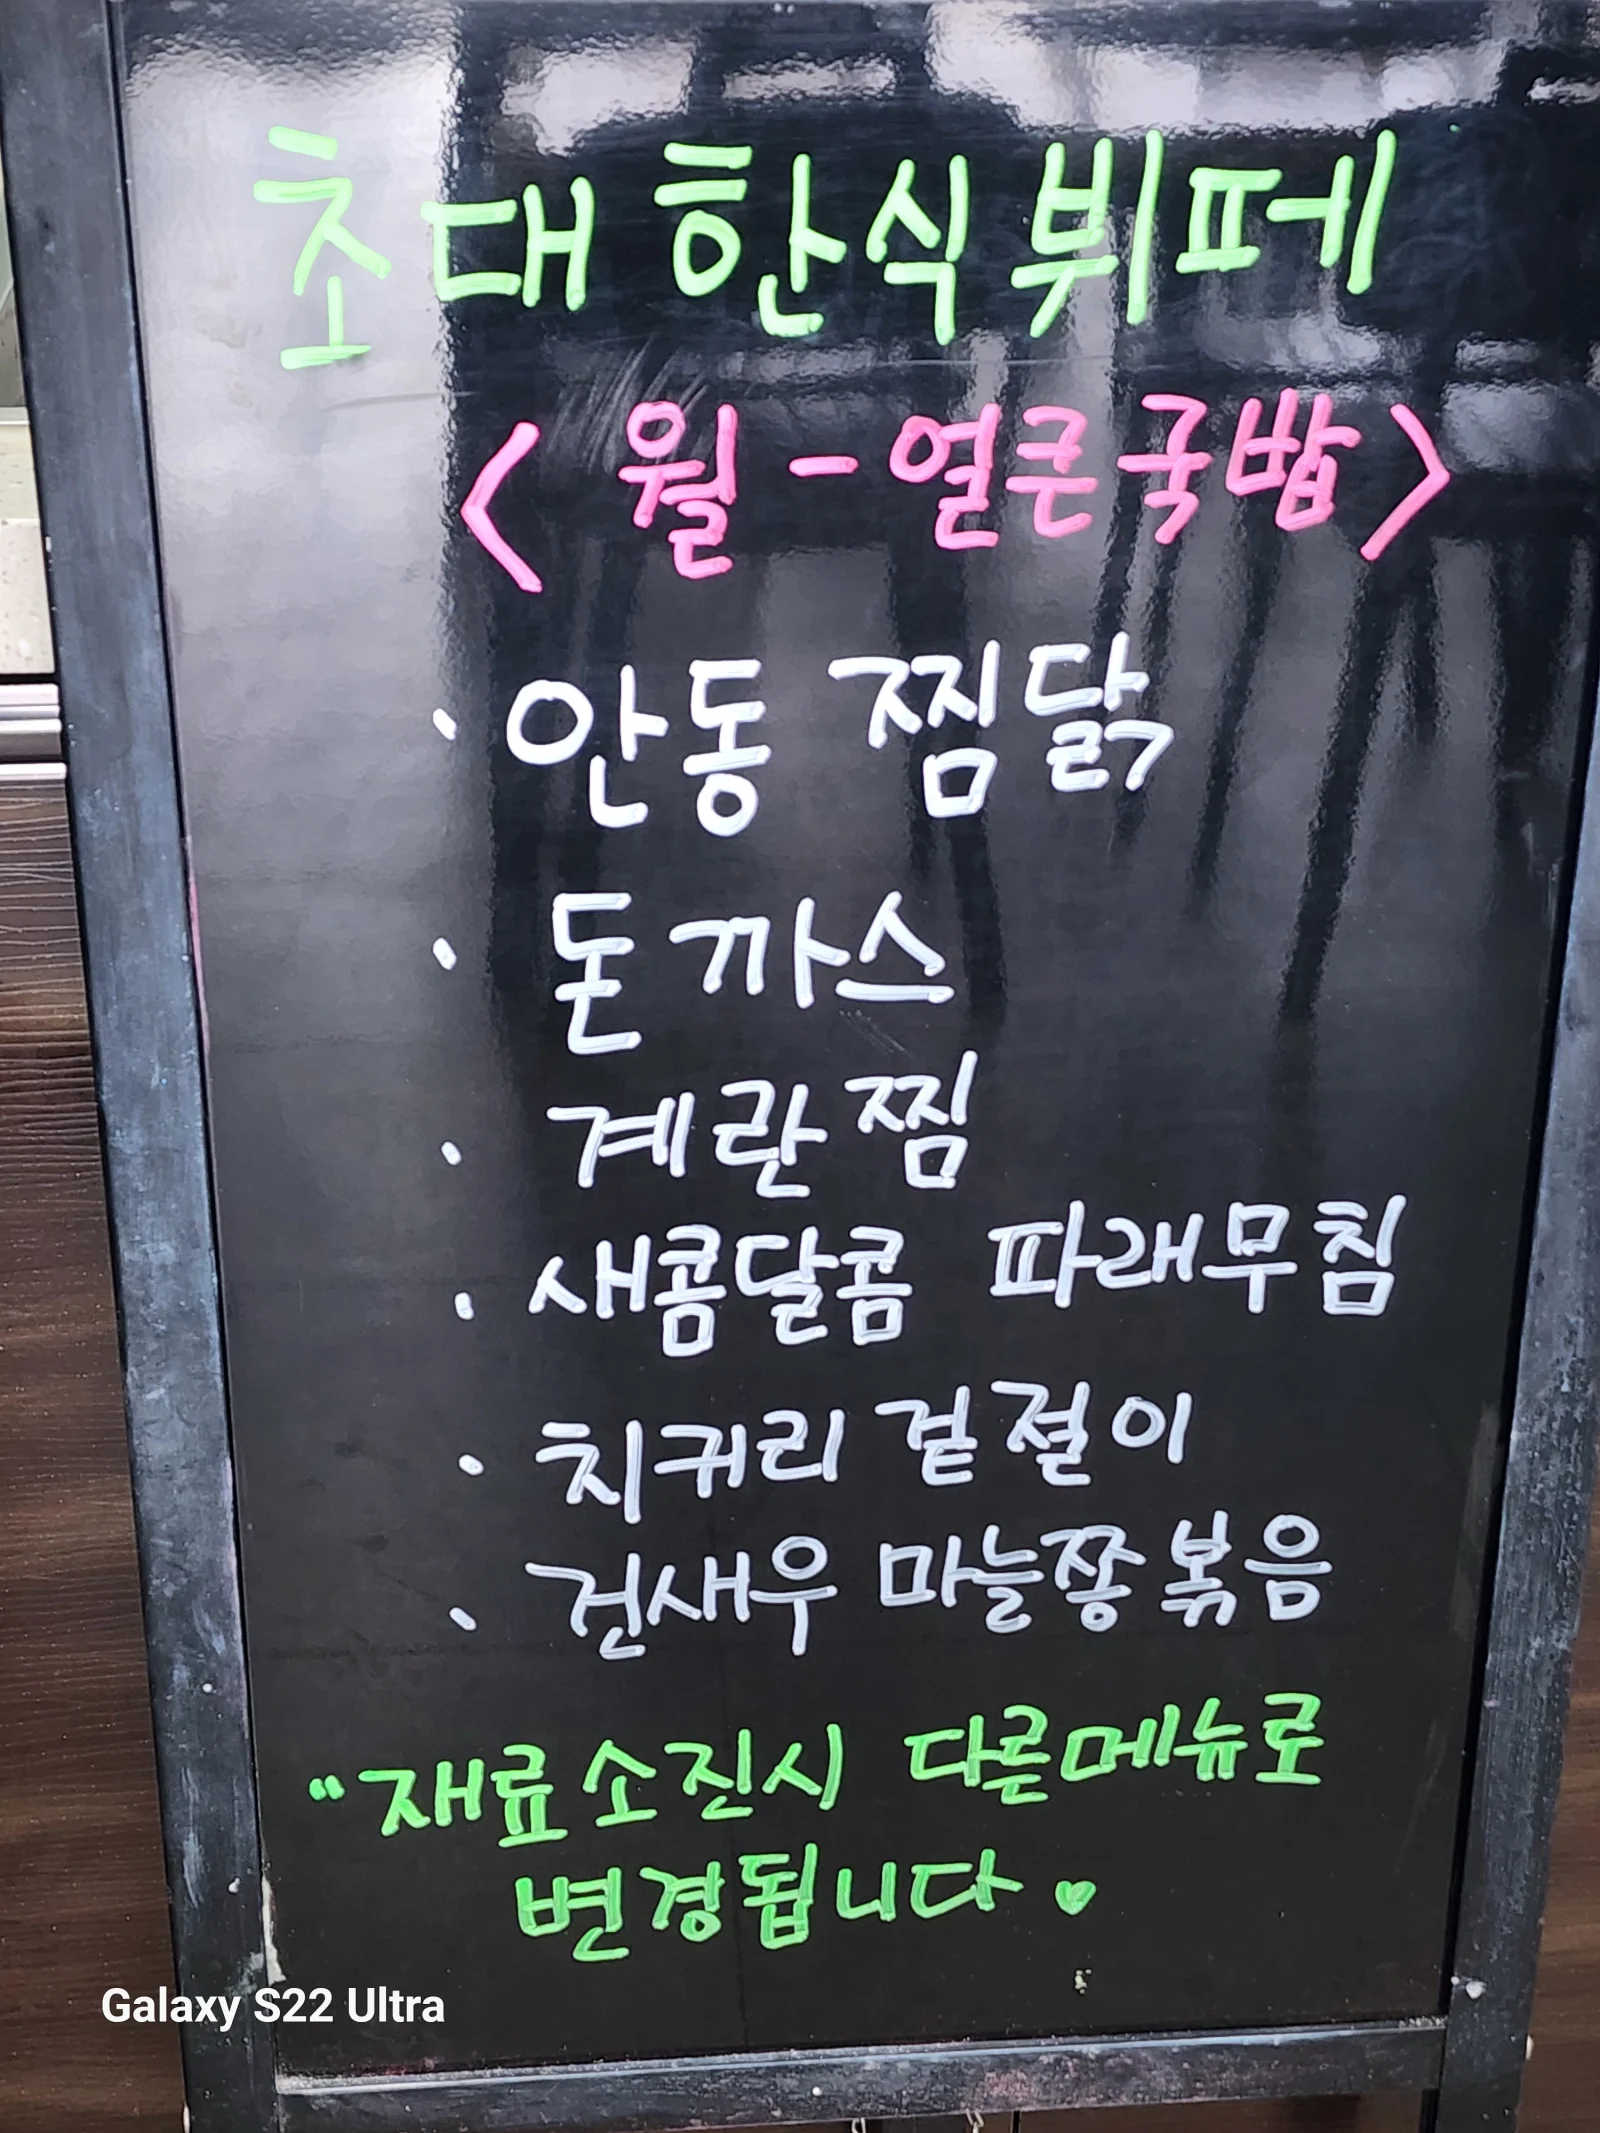 초대한식뷔페
< 월 - 얼큰국밥 >
· 안동 찜닭
· 돈까스
· 계란찜
· 새콤달콤 파래무침
· 치귀리 겉절이
· 건새우 마늘쫑볶음
"재료소진시 다른메뉴로
변경됩니다 ♥
Galaxy S22 Ultra